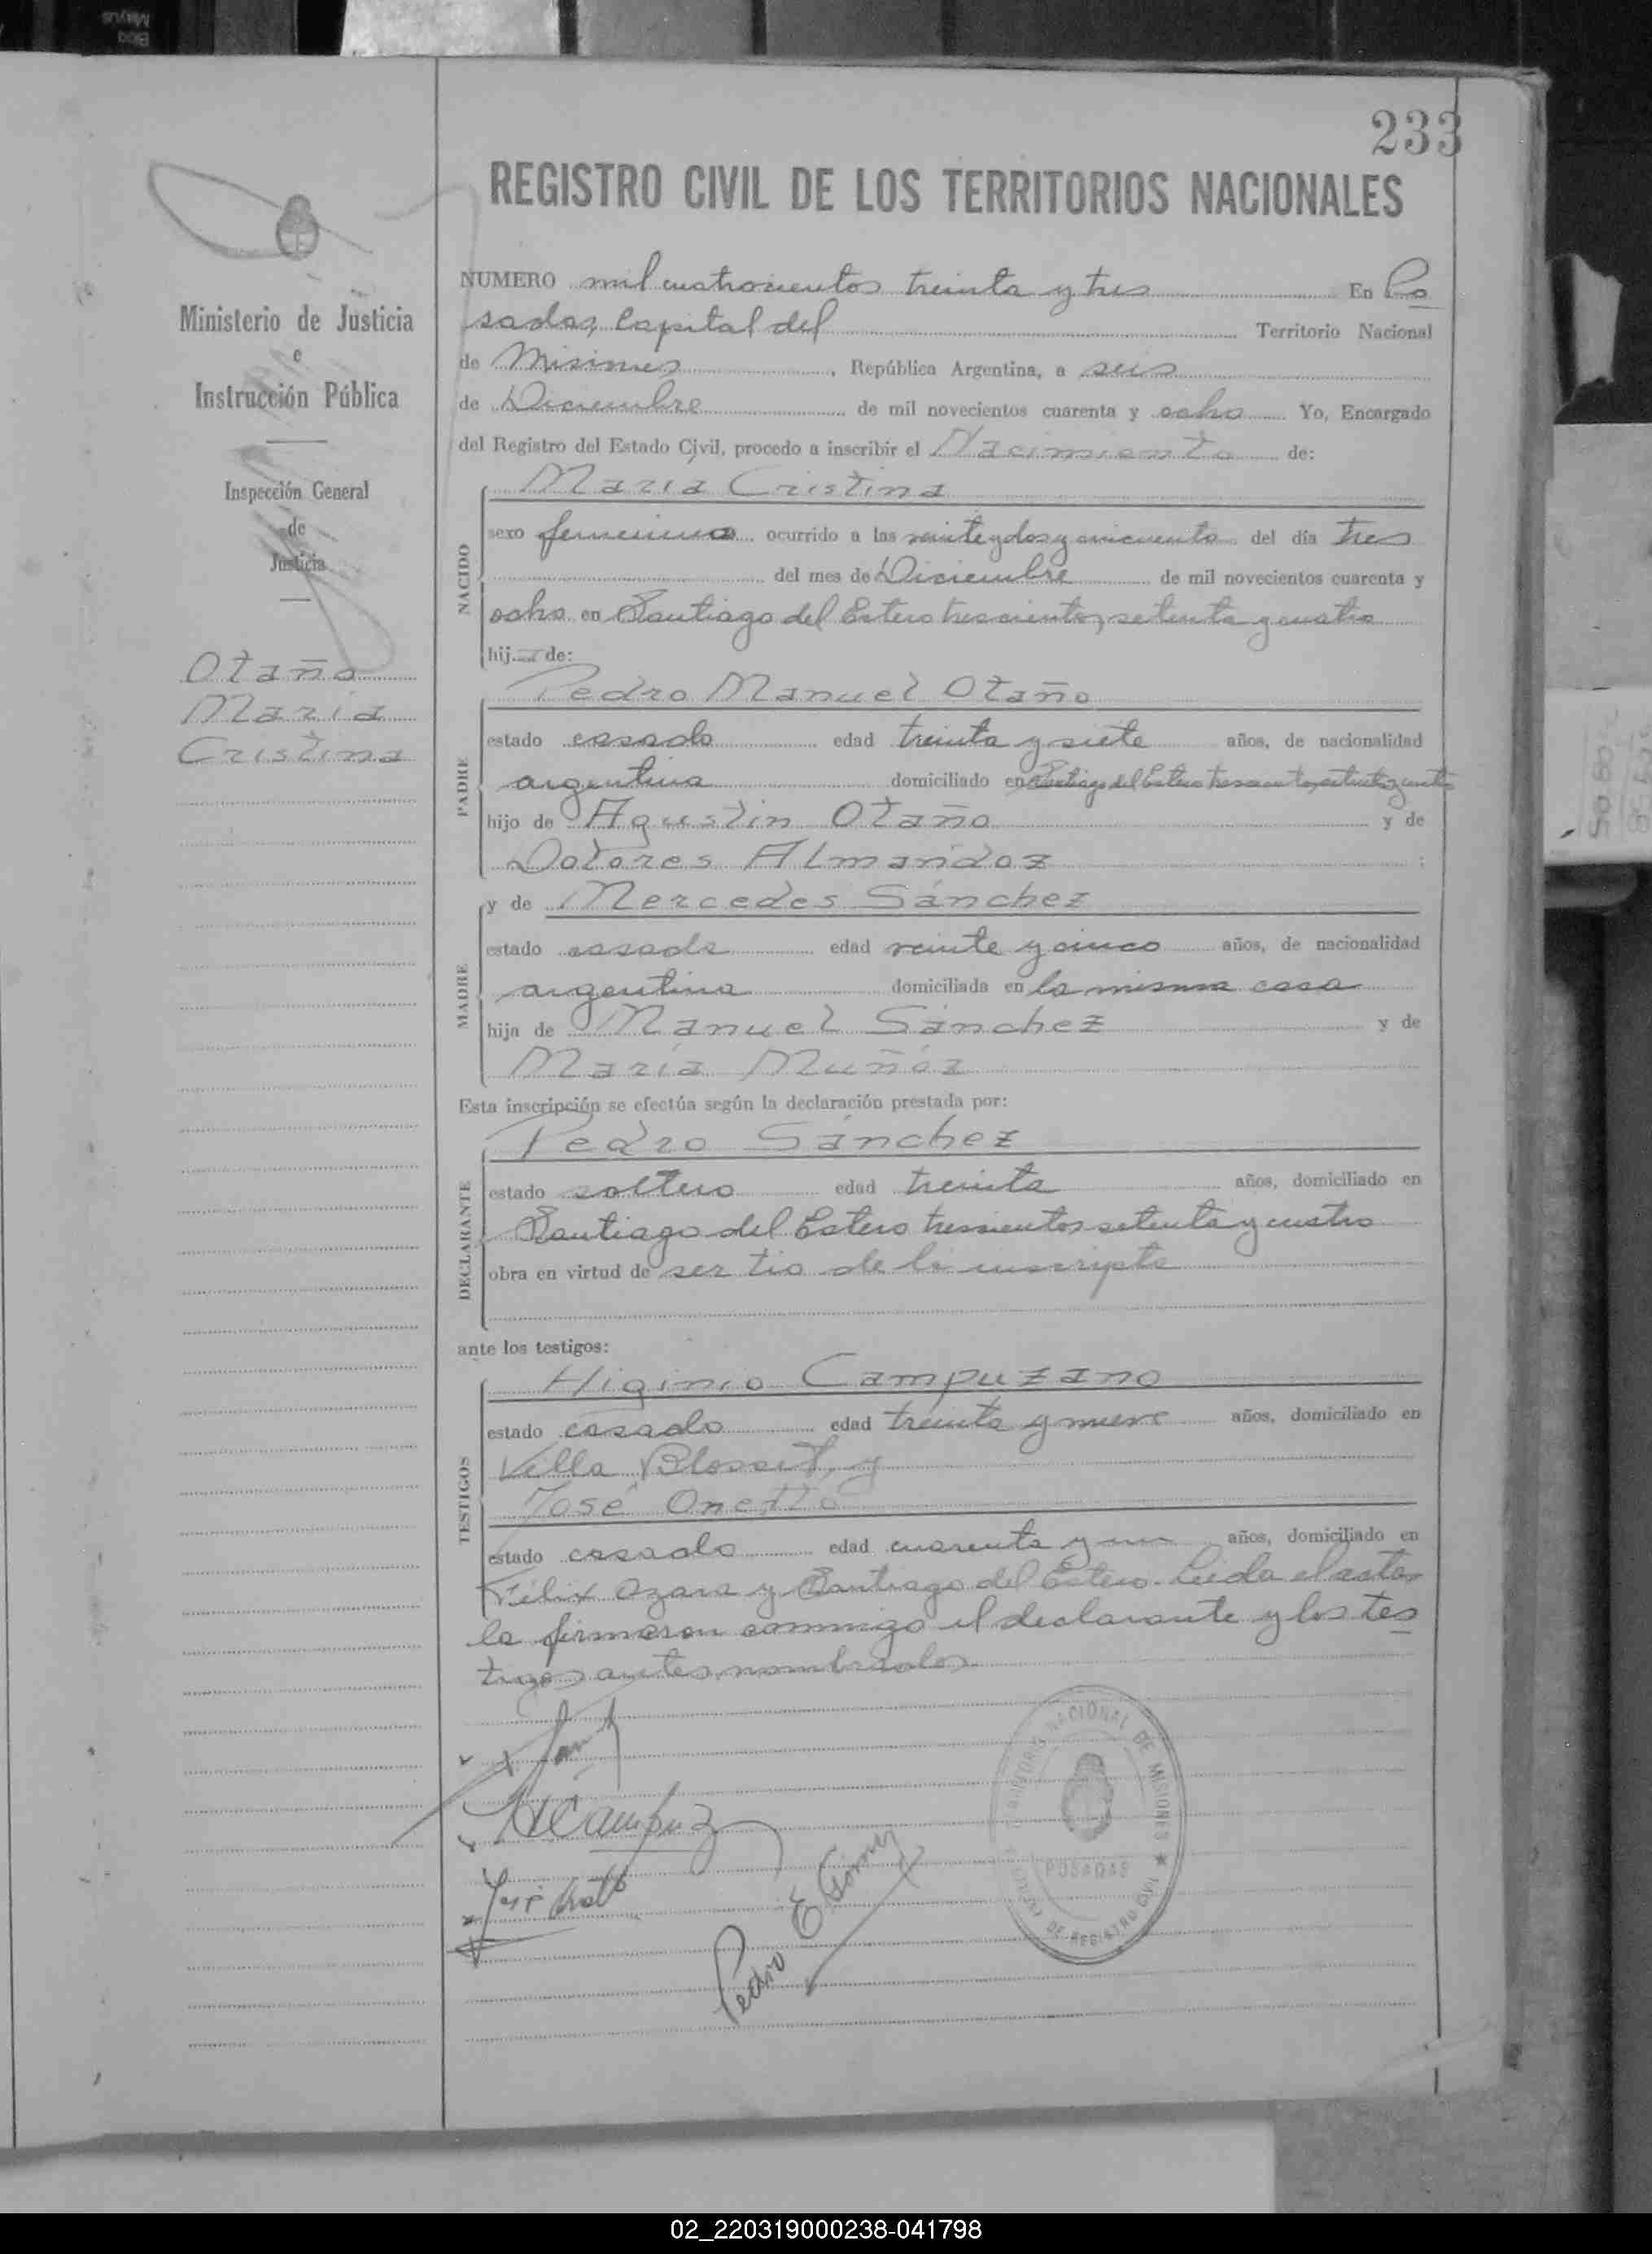 233
REGISTRO CIVIL DE LOS TERRITORIOS NACIONALES
Ministerio de Justicia
e
Instrucción Pública
Inspección General
de
Justicia
Otaño
María
Cristina
NUMERO mil cuatrocientos treinta y tres En Po
sadas, Capital del Territorio Nacional
de Misiones, República Argentina, a seis
de Diciembre de mil novecientos cuarenta y ocho Yo, Encargado
del Registro del Estado Civil, procedo a inscribir el Nacimiento de:
NACIDO
María Cristina
sexo femenino ocurrido a las veinte y dos y cincuenta del día tres
del mes de Diciembre de mil novecientos cuarenta y
ocho en Santiago del Estero trescientos setenta y cuatro
hij... de:
PADRE
Pedro Manuel Otaño
estado casado edad treinta y siete años, de nacionalidad
argentina domiciliado en Santiago del Estero trescientos setenta y cuatro
hijo de Agustín Otaño y de
Dolores Almandoz ;
MADRE
y de Mercedes Sánchez
estado casada edad veinte y cinco años, de nacionalidad
argentina domiciliada en la misma casa
hija de Manuel Sánchez y de
María Muñóz
Esta inscripción se efectúa según la declaración prestada por:
DECLARANTE
Pedro Sánchez
estado soltero edad treinta años, domiciliado en
Santiago del Estero trescientos setenta y cuatro
obra en virtud de ser tio de la inscripta
ante los testigos:
TESTIGOS
Higinio Campuzano
estado casado edad treinta y nueve años, domiciliado en
Villa Blosset, y
José Onetto
estado casado edad cuarenta y un años, domiciliado en
Félix Azara y Santiago del Estero. Leida el acta
la firmaron conmigo el declarante y los tes
tigos antes nombrados
HCampuz
José
Pedro E. Gómez
TERRITORIO NACIONAL DE MISIONES
POSADAS
DE REGISTRO CIVIL
02_220319000238-041798